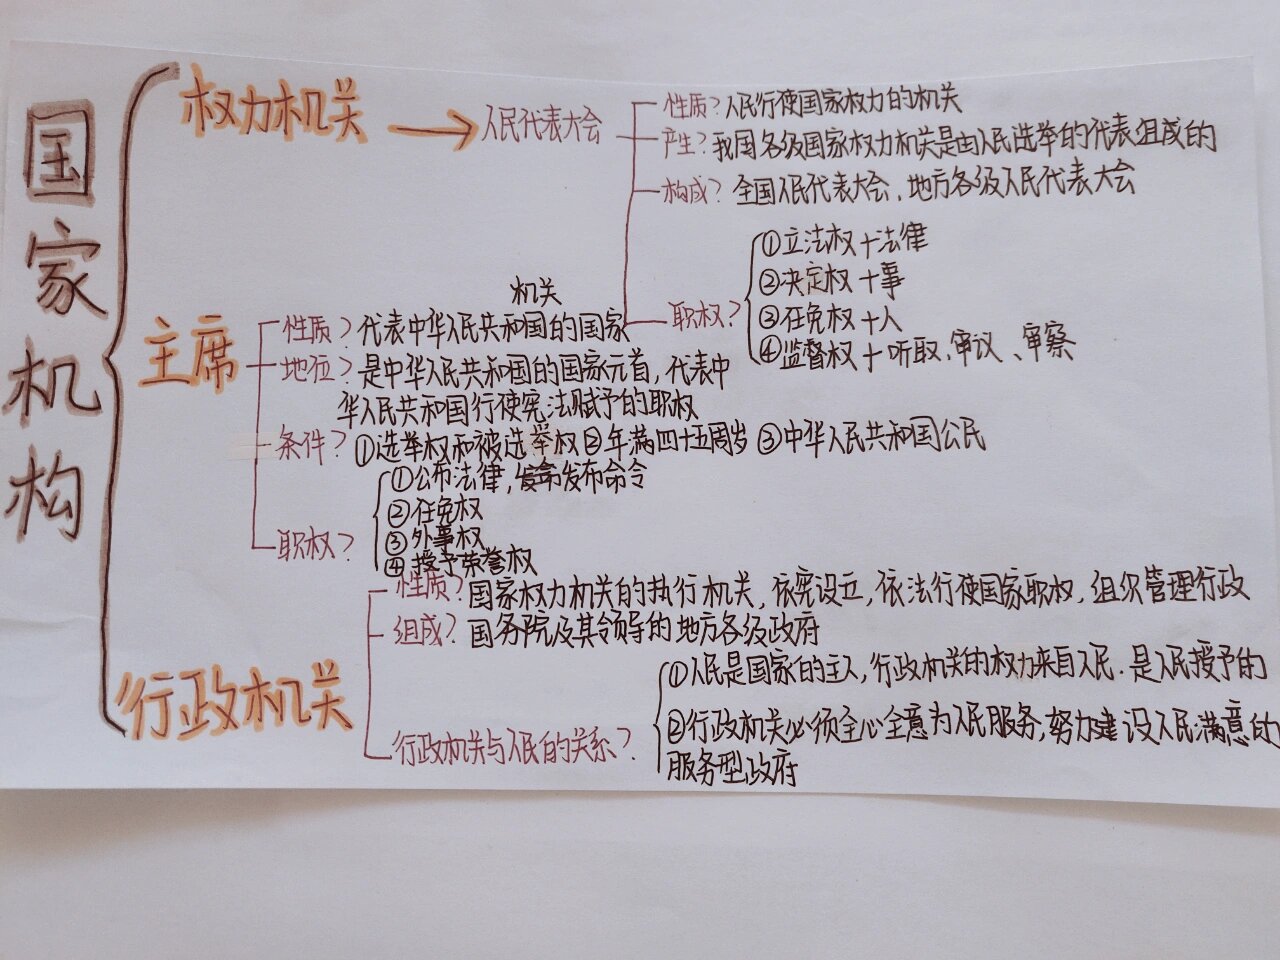 国家机构
权力机关
人民代表大会
性质？人民行使国家权力的机关
产生？我国各级国家权力机关是由人民选举的代表组成的
构成？全国人民代表大会、地方各级人民代表大会
职权？
①立法权+法律
②决定权+事
③任免权+人
④监督权+听取、审议、审察
主席
性质？代表中华人民共和国的国家
机关
地位？是中华人民共和国的国家元首，代表中
华人民共和国行使宪法赋予的职权
条件？①选举权和被选举权②年满四十五周岁③中华人民共和国公民
职权？
①公布法律，发布命令
②任免权
③外事权
④授予荣誉权
行政机关
性质？国家权力机关的执行机关，依宪设立，依法行使国家职权，组织管理行政
组成？国务院及其领导的地方各级政府
行政机关与人民的关系？
①人民是国家的主人，行政机关的权力来自人民．是人民授予的
②行政机关必须全心全意为人民服务，努力建设人民满意的
服务型政府